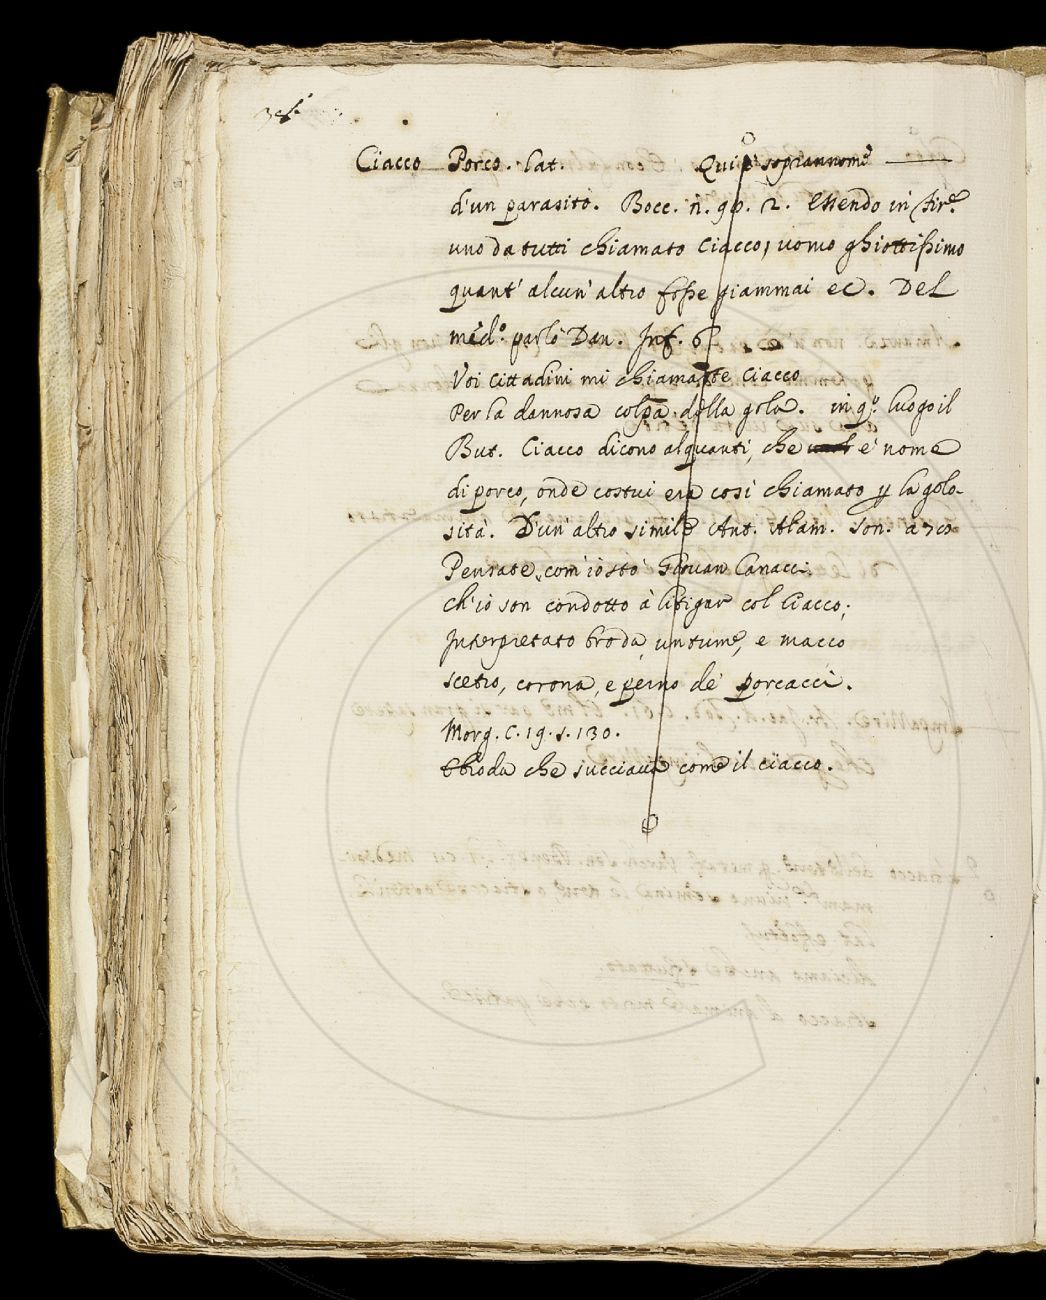 Ciacco Porco. Lat. Qui soprannome
d'un parasito. Bocc. n. 90. 2. Essendo in Fir.e
uno da tutti chiamato Ciacco, uomo ghiottissimo
quant' alcun' altro fosse giammai ec. Del
med.o parlò Dan. Inf. 6
Voi Cittadini mi chiamaste Ciacco
Per la dannosa colpa della gola. in q.o luogo il
But. Ciacco dicono alquanti, che è nome
di porco, onde costui era così chiamato p la golo-
sità. D'un' altro simile Ant. Alam. Son.
Pensate, com'io sto Giovan Canacci
ch'io son condotto à litigar col Ciacco;
Interpretato broda, untume, e macco
scetro, corona, e perno de' porcacci.
Morg. C. 19. s. 130.
E broda che succiava come il ciacco.